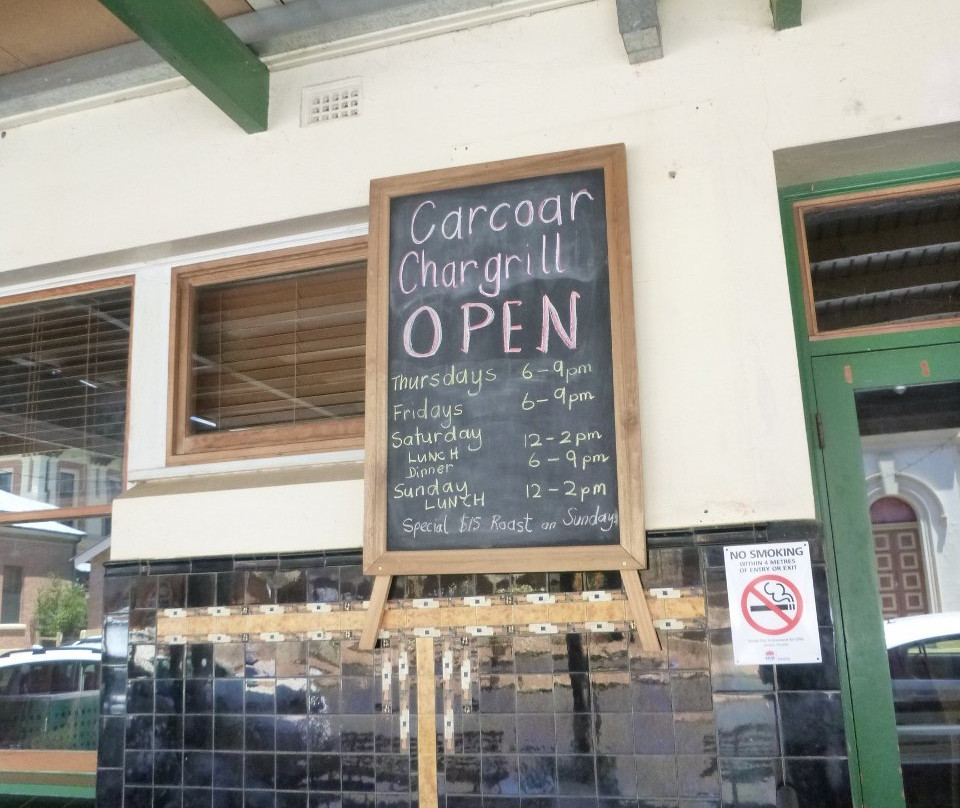 Carcoar
Chargrill
OPEN
Thursdays 6-9pm
Fridays 6-9pm
Saturday
LUNCH 12-2pm
Dinner 6-9pm
Sunday
LUNCH 12-2pm
Special $15 Roast on Sundays
NO SMOKING
WITHIN 4 METRES
OF ENTRY OR EXIT